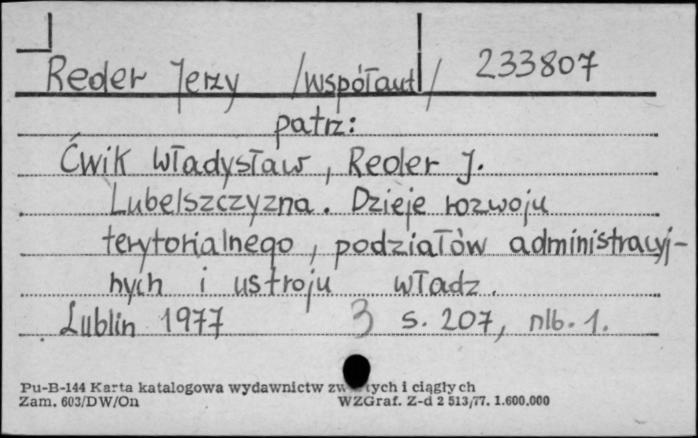 Reder Jerzy /współaut/ 233807
patrz:
Ćwik Władysław, Reder J.
Lubelszczyzna. Dzieje rozwoju
terytorialnego, podziałów administracyj-
nych i ustroju władz.
Lublin 1977 3 s. 207, nlb. 1.
Pu-B-144 Karta katalogowa wydawnictw i ciągłych
Zam. 603/DW/On WZGraf. Z-d 2 513/77. 1.600.000